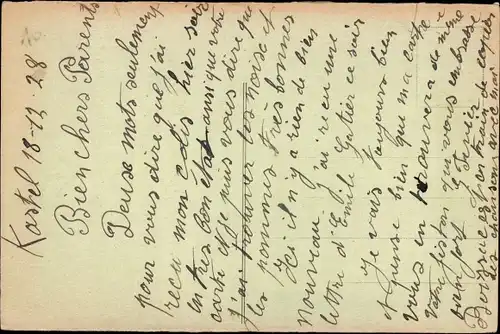 Kastel 18-12-28
Bien chers Parents
Deux mots seulement
pour vous dire que j'ai
reçu mon colis hier soir
en tres bon état ainsi que votre
carte et je puis vous dire que
j'ai trouver les noise et
les pommes très bonnes
Ici il n'y a rien de bien
nouveau j'ai recu une
lettre d'Emile Gatier ce soir
Je vais toujours bien
et pense bien que ma carte
vous en trouvera de même
votre fiston qui vous embrasse
bien fort
en train de copier